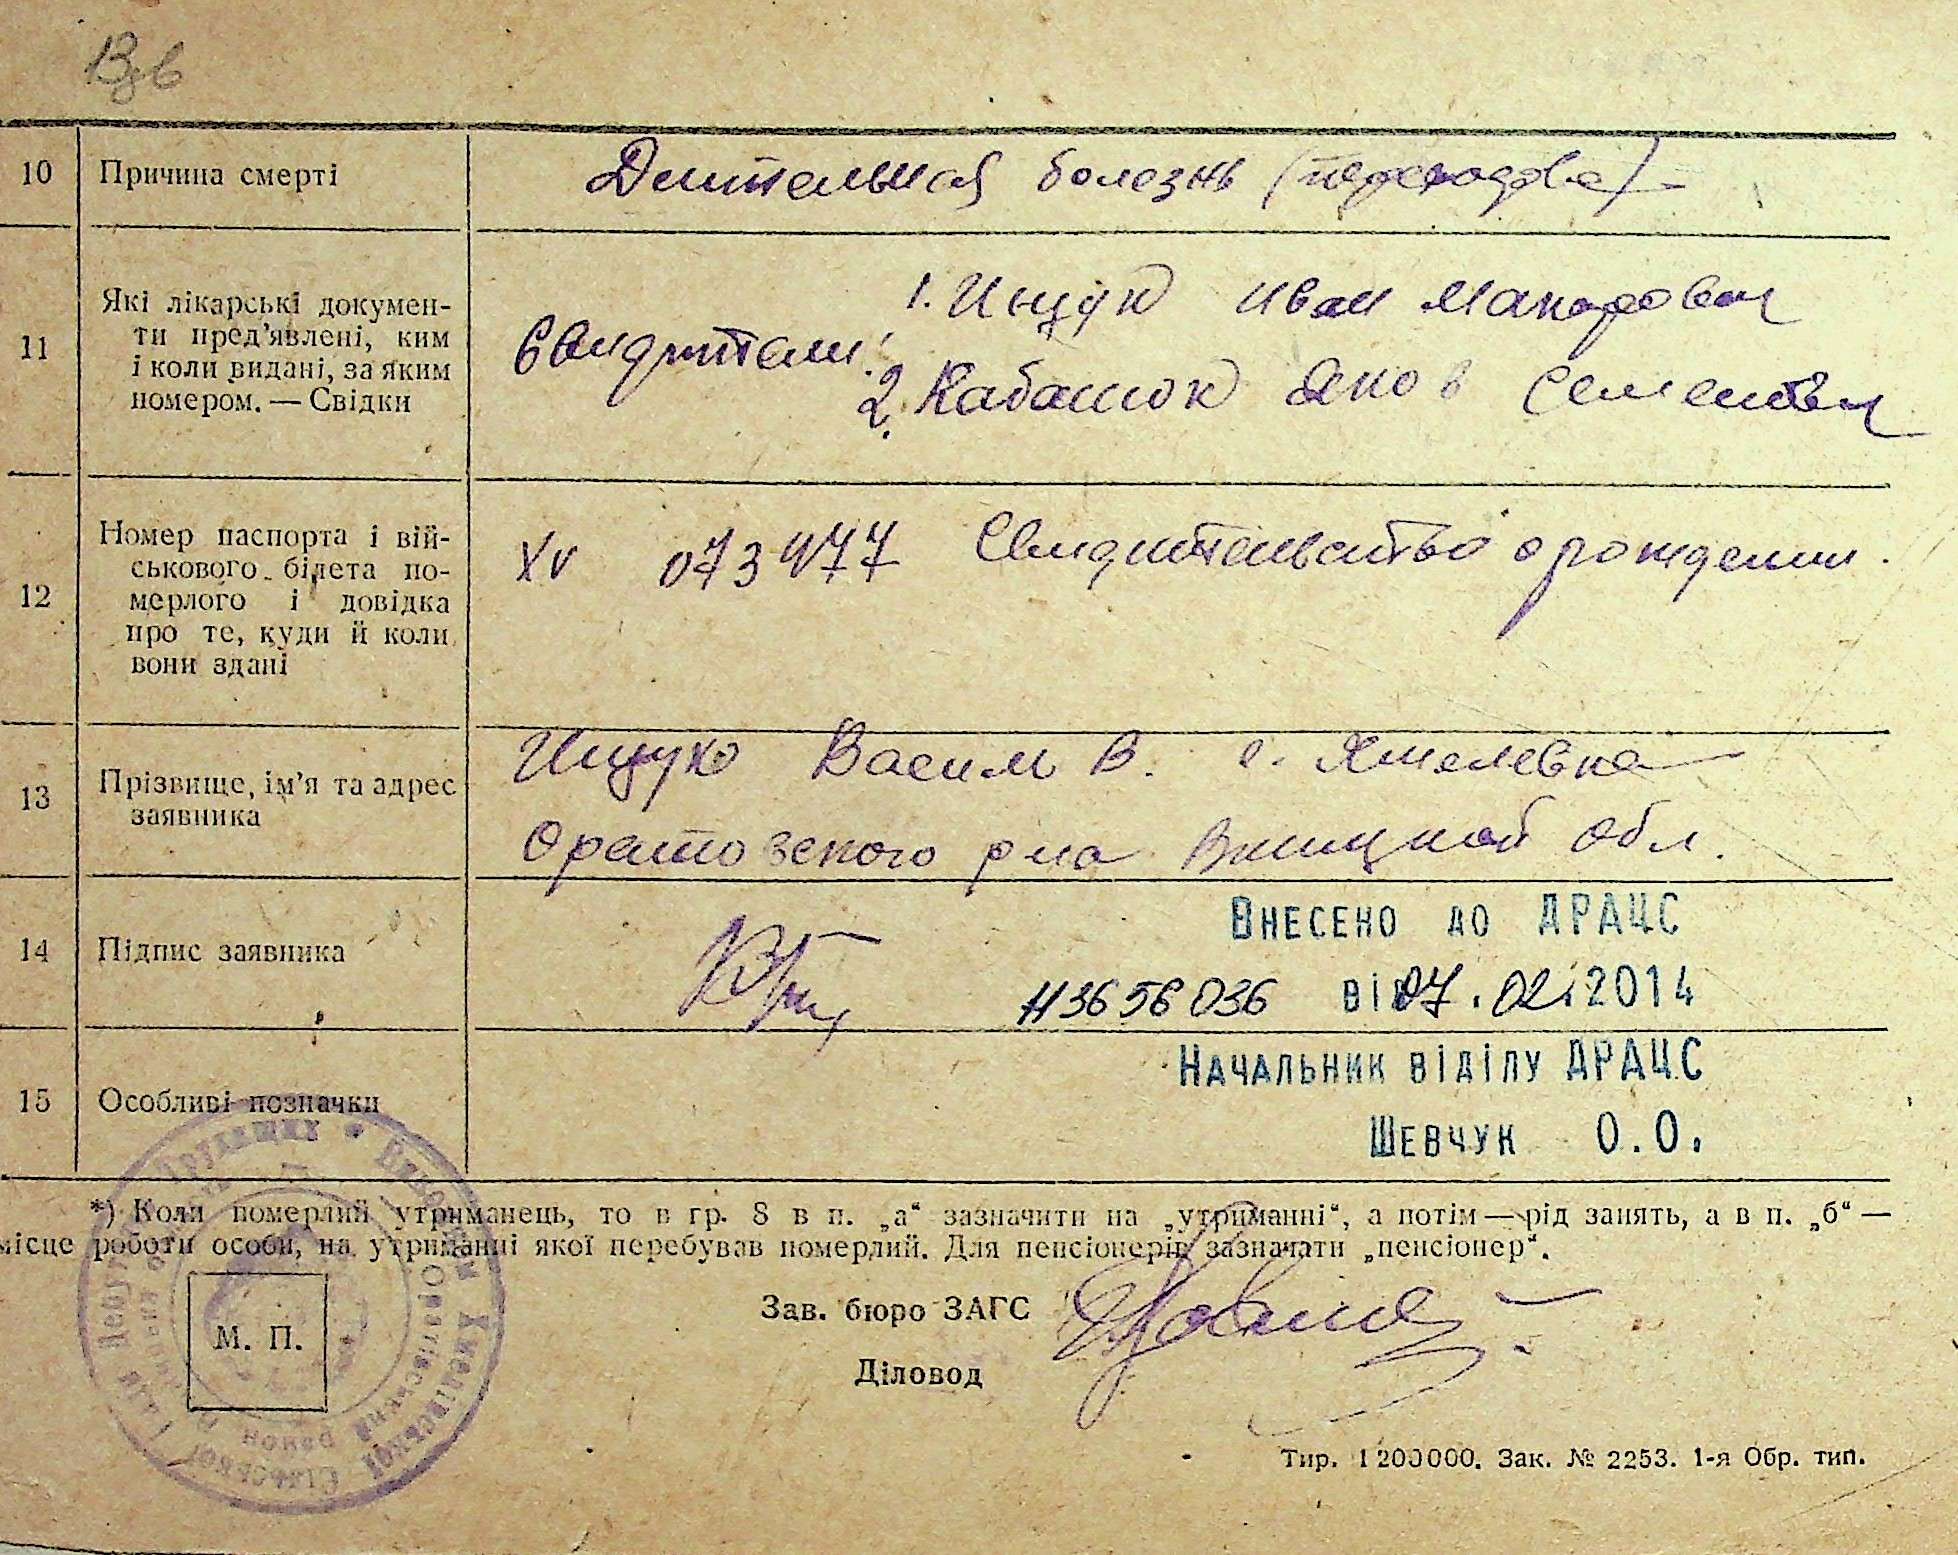 10 Причина смерті Длительная болезнь
11 Які лікарські докумен-
ти пред'явлені, ким
і коли видані, за яким
номером. — Свідки
Свидители:
1. Ищук Иван Макарович
2. Кабашюк Яков Семенович
12 Номер паспорта і вій-
ськового білета по-
мерлого і довідка
про те, куди й коли
вони здані
XV 073477 Свидительство о рождении.
13 Прізвище, ім'я та адрес
заявника
Ищук Васил В. с. Хмелевка
Оратовского р на Вницкой обл.
14 Підпис заявника
Внесено до ДРАЦС
43656036 від 07.02.2014
15 Особливі позначки
Начальник віділу ДРАЦС
Шевчук О.О.
*) Коли померлий утриманець, то в гр. 8 в п. „а“ зазначити на „утриманні“, а потім — рід занять, а в п. „б“ —
місце роботи особи, на утриманні якої перебував померлий. Для пенсіонерів зазначати „пенсіонер“.
М. П.
Зав. бюро ЗАГС
Діловод
Тир. 1200000. Зак. № 2253. 1-я Обр. тип.